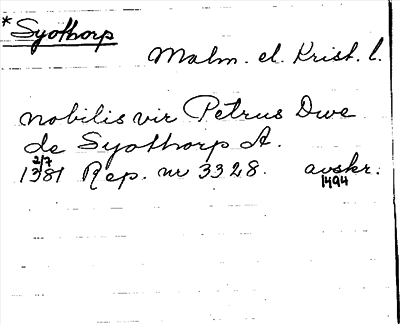 * Syothorp
Malm. el. Krist. l.
nobilis vir Petrus Dwe
de Syothorp A.
2/7
1381 Rep. nr 3328. avskr.
1494